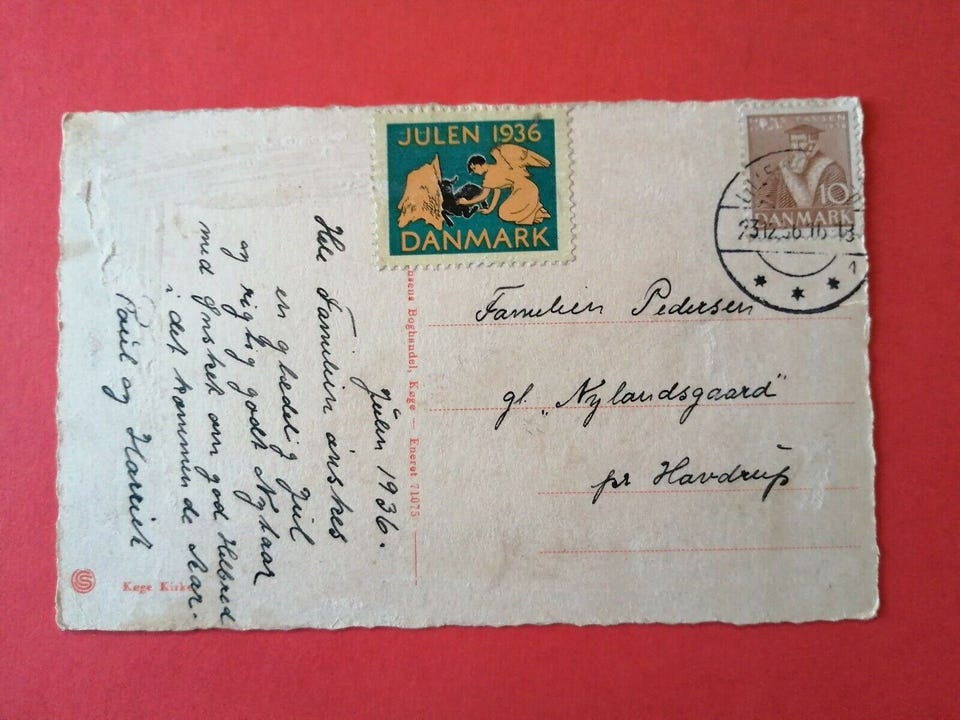 JULEN 1936
DANMARK
10
DANMARK
23.12.36.16-18
1
Familien Pedersen
gl. „Nylandsgaard"
pr Havdrup
Julen 1936.
Hele Familien ønskes
en glædelig Jul
og rigtig godt Nytaar
med Ønsket om god Helbred
i det kommende Aar.
Poul og Harriet
Boghandel, Køge — Eneret 71075
Køge Kirke